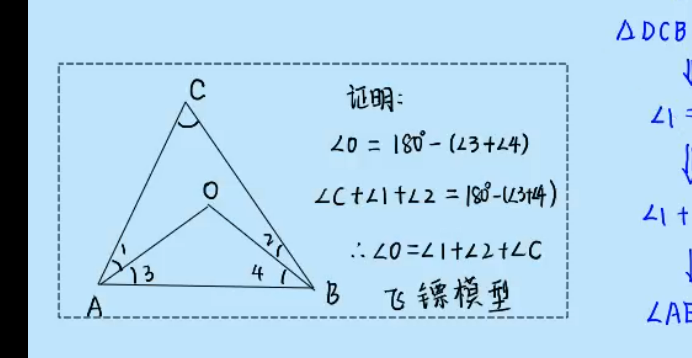 C
O
1
2
3
4
A
B
证明:
∠O = 180° - (∠3+∠4)
∠C+∠1+∠2 = 180°-(∠3+∠4)
∴ ∠O=∠1+∠2+∠C
飞镖模型
△DCB
↓
∠1 =
∠1 +
∠AE